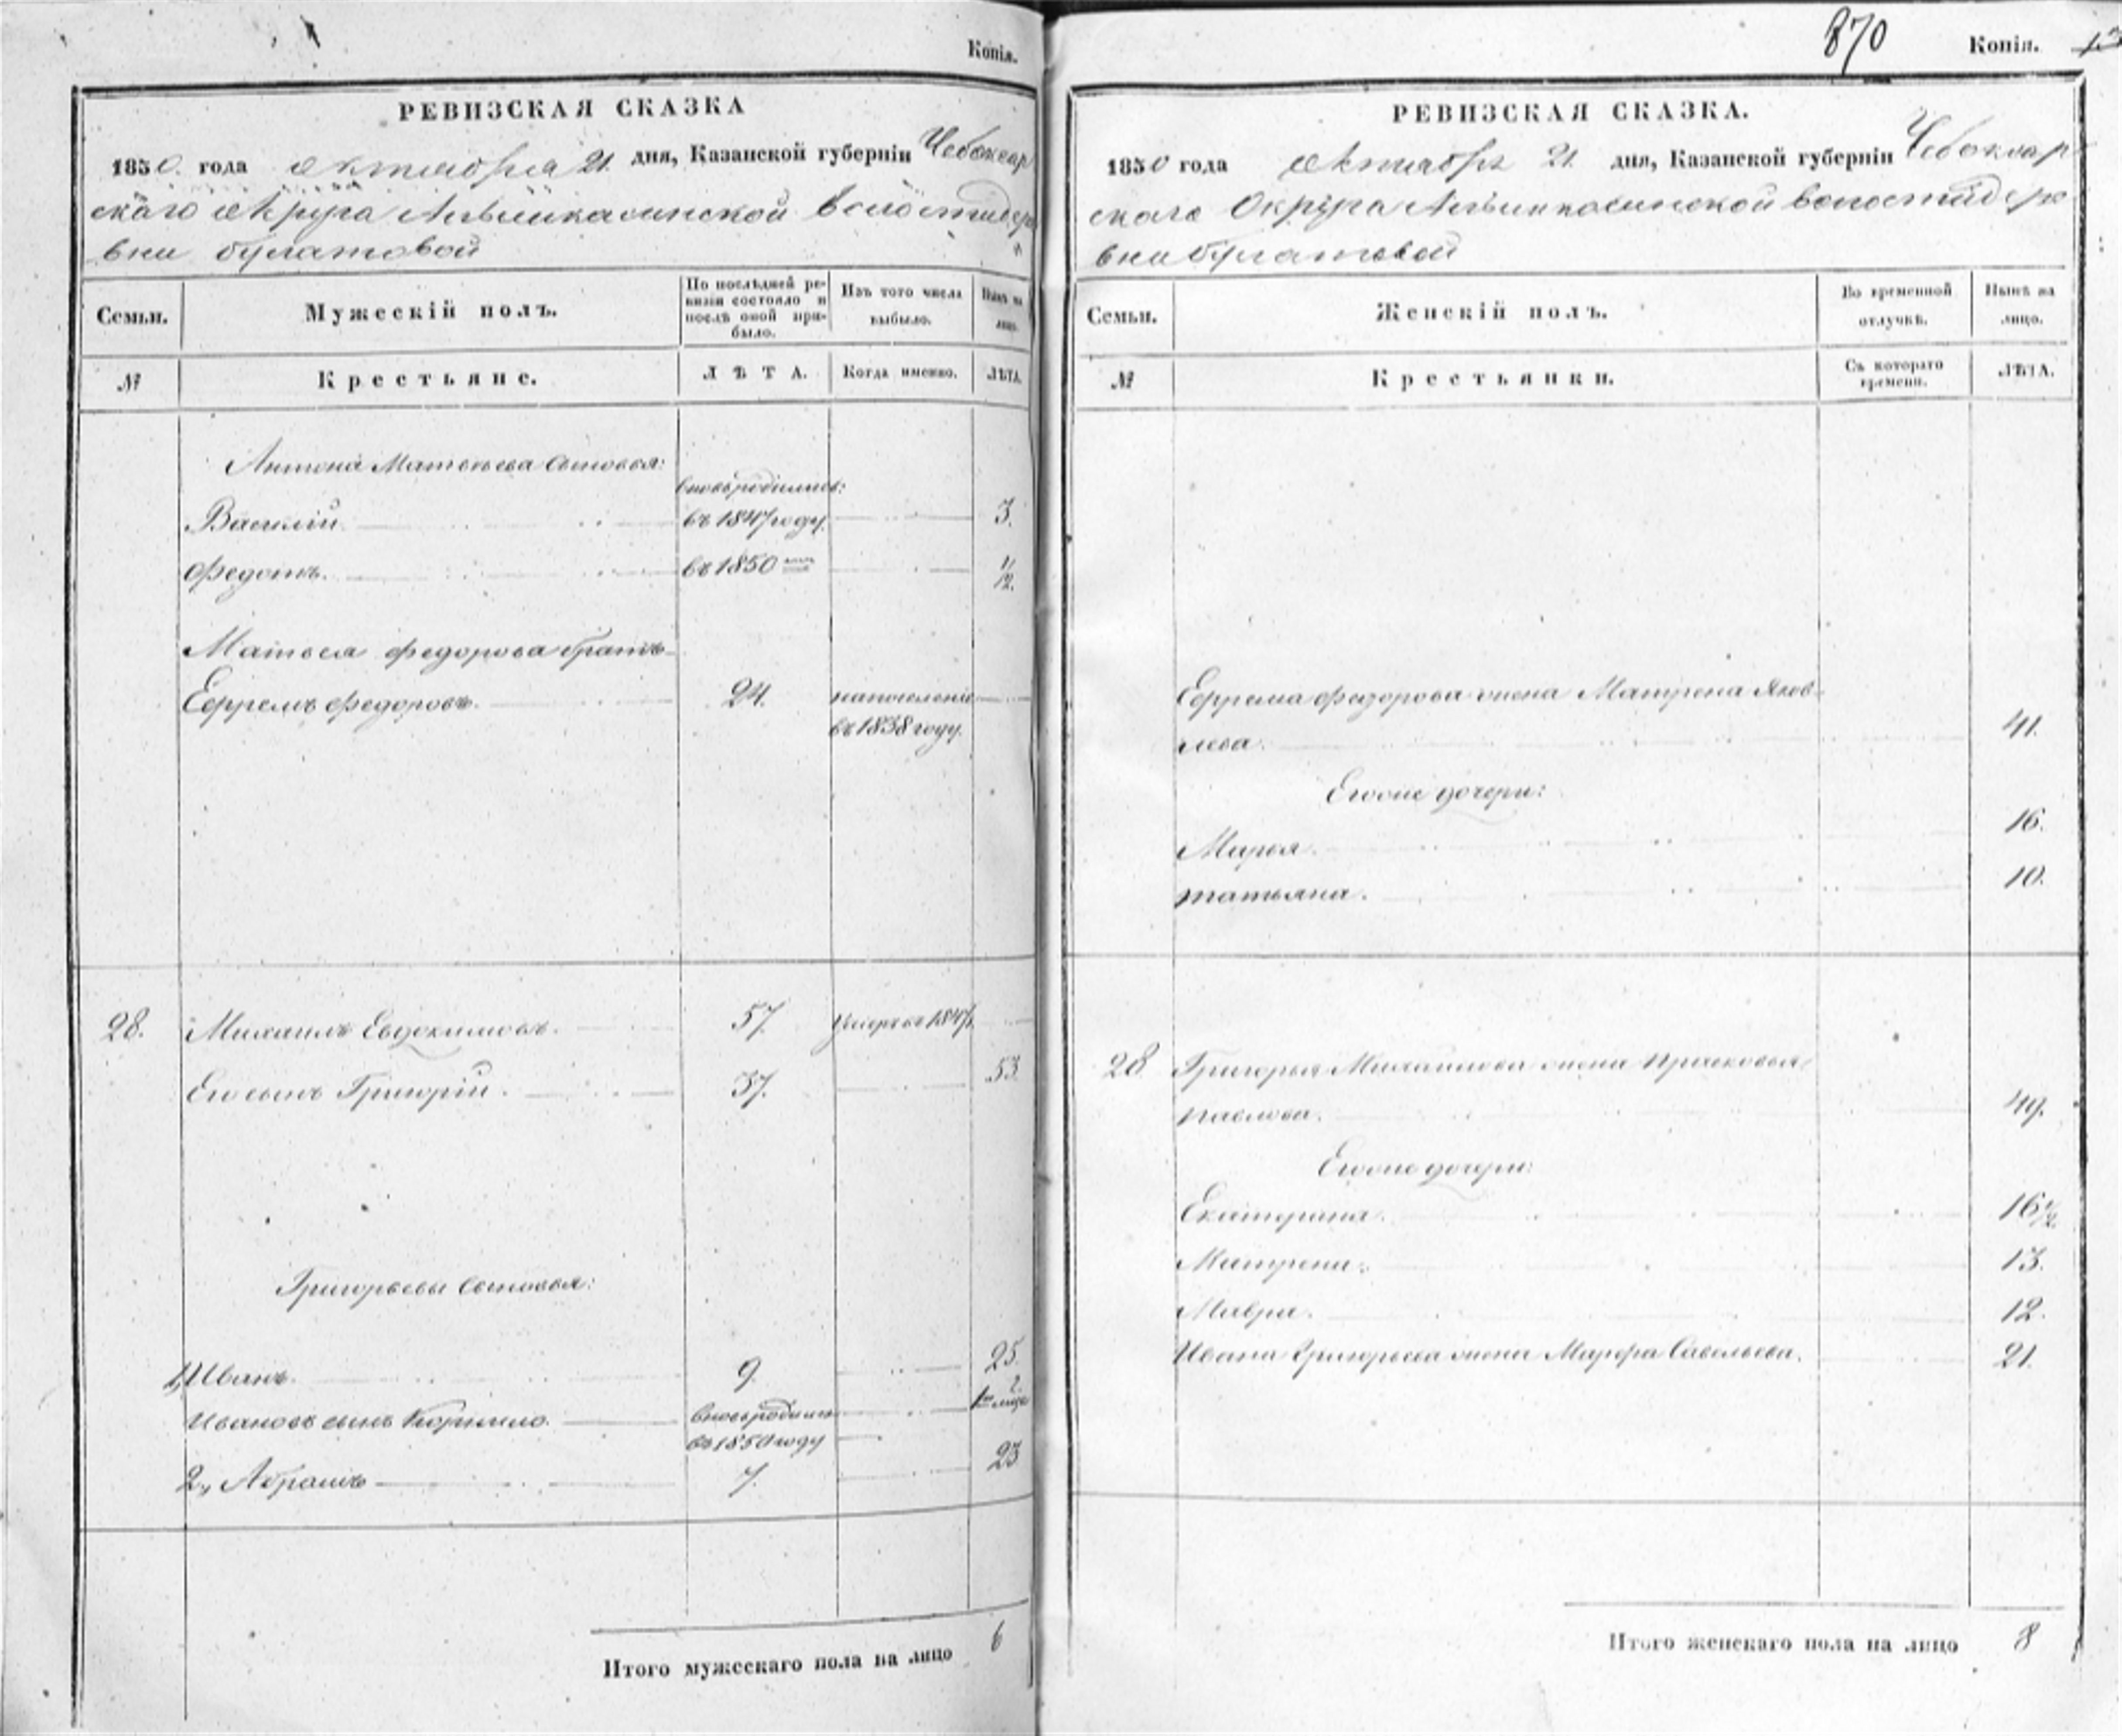 Копія.
РЕВИЗСКАЯ СКАЗКА
1850. года октября 21. дня, Казанской губерніи Чебоксар
скаго округа волости дере
вни Булатовой
Семьи.
Мужескій полъ.
По послѣдней ре-
визіи состояло и
послѣ оной при-
было.
Изъ того числа
выбыло.
Нынѣ на
лицо.
№
Крестьяне.
ЛѢТА.
Когда именно.
ЛѢТА.
Антона Матвеева сыновья:
вновь родились:
Василій. въ 1847 году. 3.
Федотъ. въ 1850 11/12.
Матвея Федорова братъ
Ефремъ Федоровъ. 24. на поселеніе
въ 1838 году.
28. Михаилъ Евдокимовъ. 57. 
Его сынъ Григорій. 37. 53.
Григорьевы сыновья:
1, Иванъ. 9. 25.
Ивановъ сынъ вновь родился
въ 1850 году
2, Абрамъ 7. 23
Итого мужескаго пола на лицо 6
870
Копія.
РЕВИЗСКАЯ СКАЗКА.
1850 года октября 21. дня, Казанской губерніи Чебоксар
скаго Округа волости дере
вни Булатовой
Семьи.
Женскій полъ.
Во временной
отлучкѣ.
Нынѣ на
лицо.
№
Крестьянки.
Съ котораго
времени.
ЛѢТА.
Ефрема Федорова жена Матрена Яков-
лева. 41.
Егоже дочери:
Марья. 16.
Татьяна. 10.
28 Григорья Михайлова жена Прасковья
Павлова. 49.
Егоже дочери:
Екатерина. 16 1/2.
Матрена. 13.
Мавра. 12.
Ивана Григорьева жена Марфа Савельева. 21.
Итого женскаго пола на лицо 8